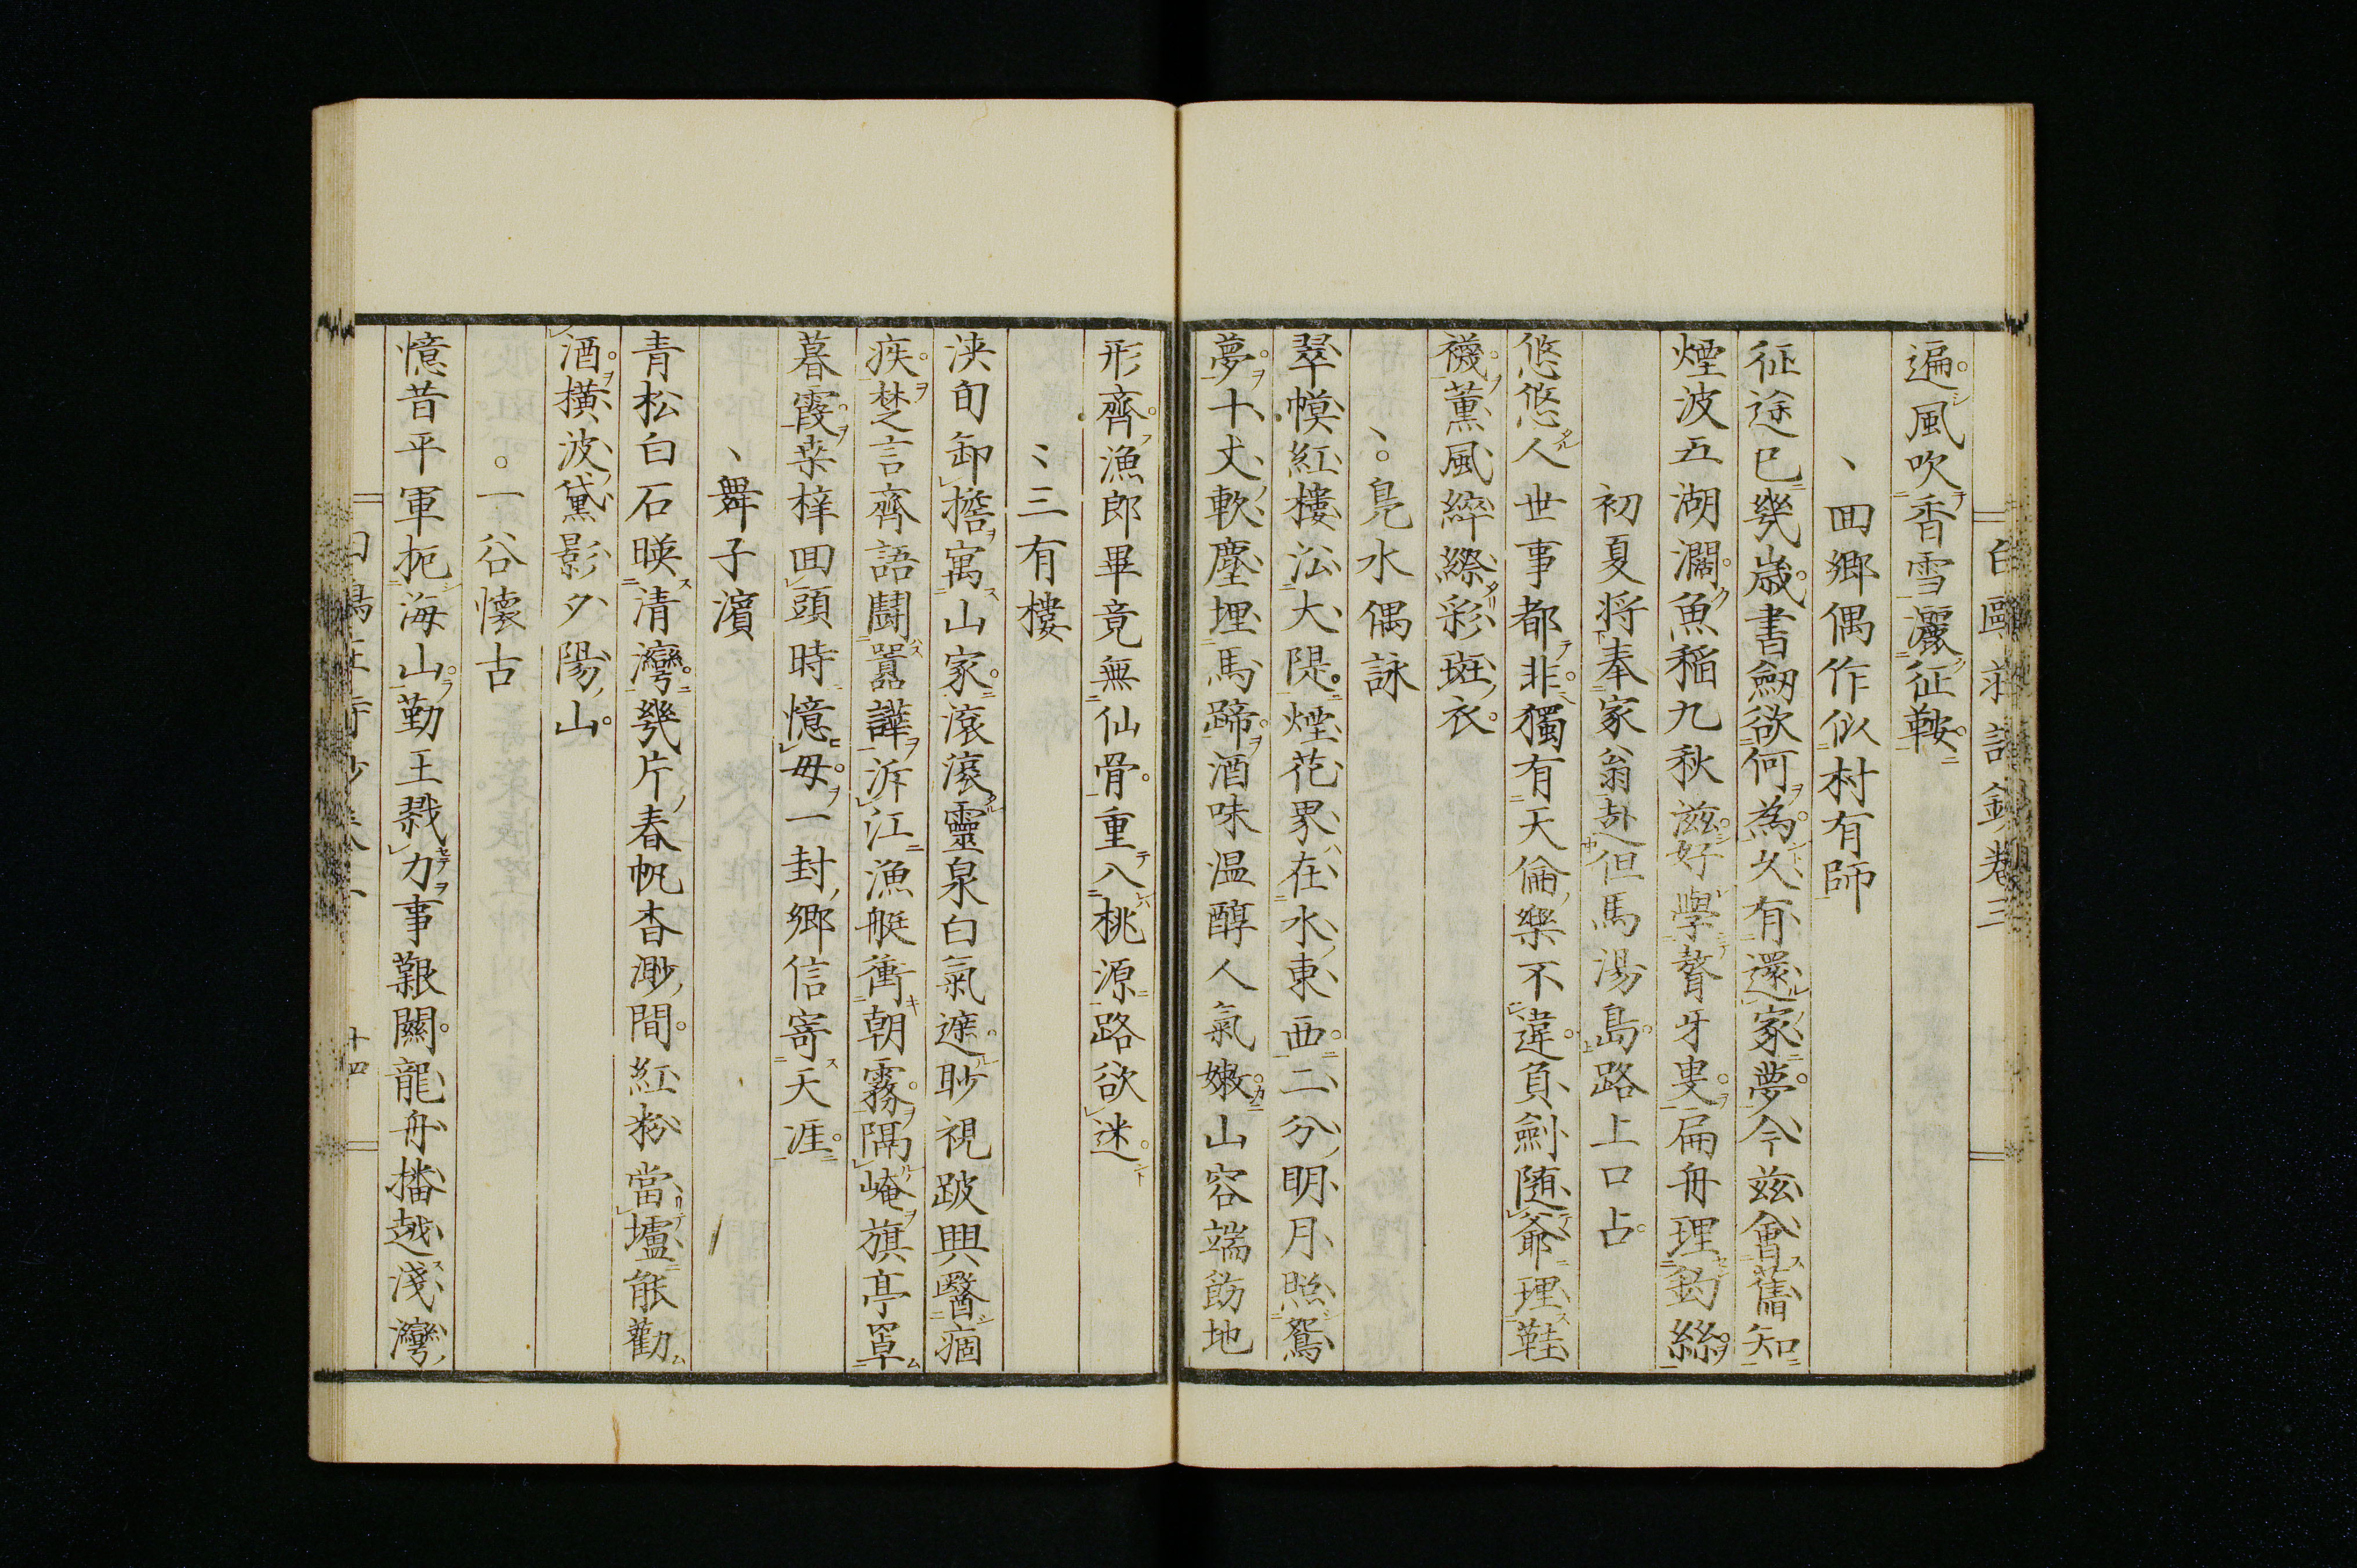 遍風吹香雪灑征鞍
回鄉偶作似村有師
征途已幾歲書劒欲何為久有還家夢今茲會舊知
煙波五湖濶魚稲九秋滋好學聱牙叟扁舟理釣絲
初夏将奉家翁赴但馬湯島路上口占
悠悠人世事都非獨有天倫樂不違負劍随爺理鞋
襪薫風綷縩彩斑衣
鳧水偶詠
翠幙紅樓㳂大隄煙花界在水東西二分明月照鴛
夢十丈軟塵埋馬蹄酒味温醇人氣嫩山容端飭地
形齊漁郎畢竟無仙骨重入桃源路欲迷
三有樓
浹旬卸擔寓山家滾滾靈泉白氣遮眇視跛興醫痼
疾楚言齊語鬪囂譁泝江漁艇衝朝霧隔崦旗亭罩
暮霞桒梓回頭時憶母一封鄉信寄天涯
舞子濵
青松白石暎清灣幾片春帆杳渺間紅粉當壚能勸
酒橫波黛影夕陽山
一谷懐古
憶昔平軍扼海山勤王戮力事艱關龍舟播越淺灣
十四